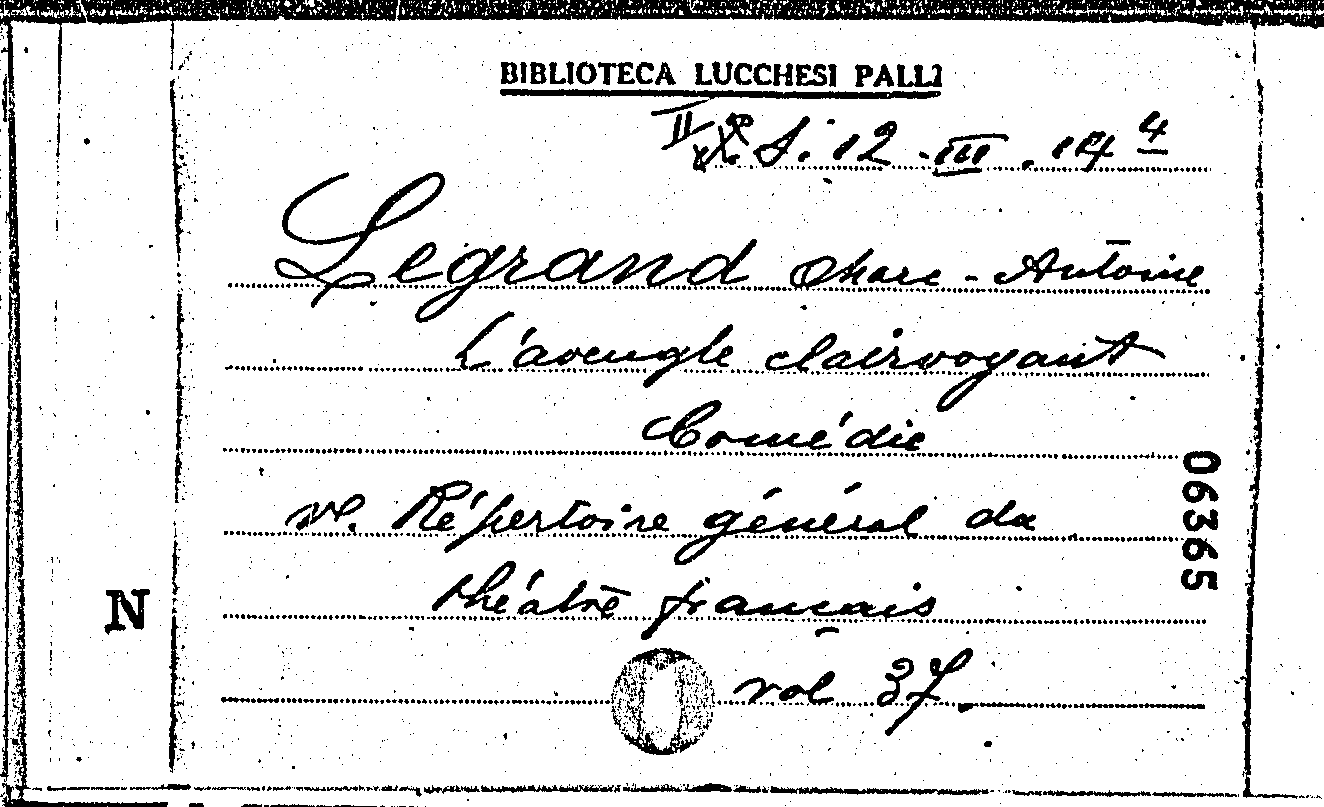 BIBLIOTECA LUCCHESI PALLI
S. 12 - III . 14 4
Legrand Marc-Antoine
L'aveugle clairvoyant
Comédie
v. Répertoire général du
théâtre français
vol 37.
06365
N